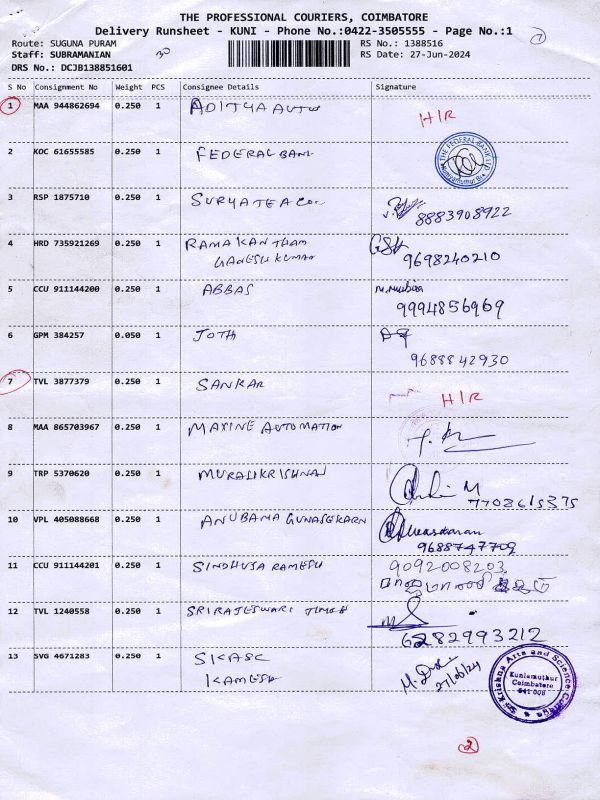 THE PROFESSIONAL COURIERS, COIMBATORE
Delivery Runsheet - KUNI - Phone No.:0422-3505555 - Page No.:1
Route: SUGUNA PURAM RS No.: 1388516
Staff: SUBRAMANIAN 30 RS Date: 27-Jun-2024
DRS No.: DCJB138851601
S No Consignment No Weight PCS Consignee Details Signature
1 MAA 944862694 0.250 1 ADITYA AUTO H/R
2 KOC 61655585 0.250 1 FEDERAL BANK THE FEDERAL BANK LTD
3 RSP 1875710 0.250 1 SURYA TEA Co. 8883908922
4 HRD 735921269 0.250 1 RAMAKANTHAM
GANESH KUMAR 9698240210
5 CCU 911144200 0.250 1 ABBAS 9994856969
6 GPM 384257 0.050 1 JOTH
9688842930
7 TVL 3877379 0.250 1 SANKAR H/R
8 MAA 865703967 0.250 1 MAXINE AUTOMATION
9 TRP 5370620 0.250 1 MURALIKRISHNAN
10 VPL 405088668 0.250 1 ANUBAMA GUNASEKARN
9688747709
11 CCU 911144201 0.250 1 SINDHUJA RAMESH 9092008203
12 TVL 1240558 0.250 1 SRI RAJESWARI
6282993212
13 SVG 4671283 0.250 1 SKASC 27/06/24
KAMESH
Sri Krishna Arts and Science College
Kuniamuthur
Coimbatore
641 008
2